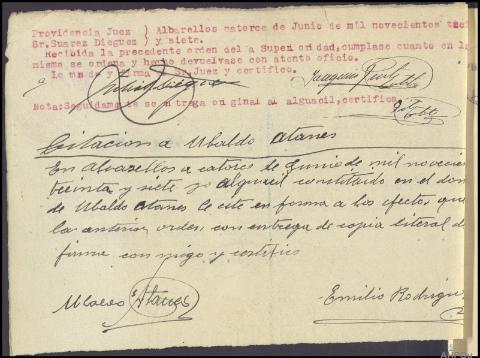 Providencia Juez } Albarellos catorce de Junio de mil novecientos
Sr.Suarez Dieguez } y siete.
Recibida la precedente orden del a Superi oridad, cumplase cuanto en l
misma se ordena y hecho devuelvase con atento oficio.
Lo manda y firma Sr.Juez y certifico.
Nota;Seguidamente se entrega original al alguacil, certifico
Citacion a Ubaldo Atanes
En Alvarellos a catorce de Junio de mil novecien
treinta y siete yo alguacil constituido en el dom
de Ubaldo Atanes le cite en forma a los efectos que
la anterior orden, con entrega de copia literal de
firma con migo y certifico
Ubaldo Atanes
Emilio Rodrigue